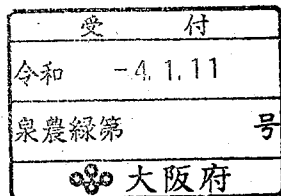 受 付
令和 -4.1.11
泉農緑第 号
大阪府